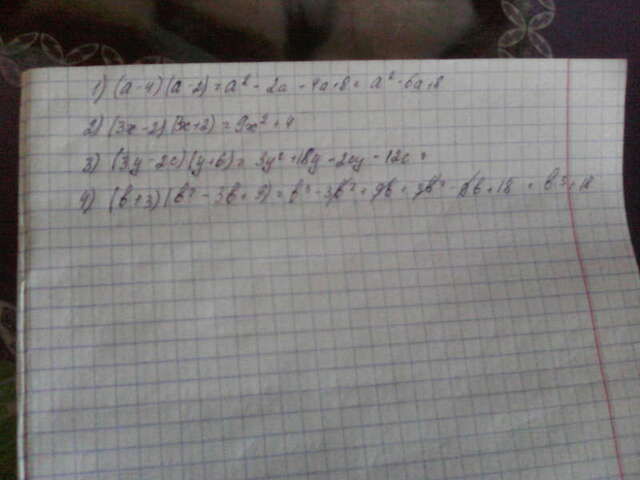 1) (a-4)(a-2)=a²-2a-4a+8=a²-6a+8
2) (3x-2)(3x+2)=9x²+4
3) (3y-2c)(y+6)=3y²+18y-2cy-12c=
4) (в+3)(в²-3в+9)=в³-3в²+9в+3в²- в+18 = в³+18